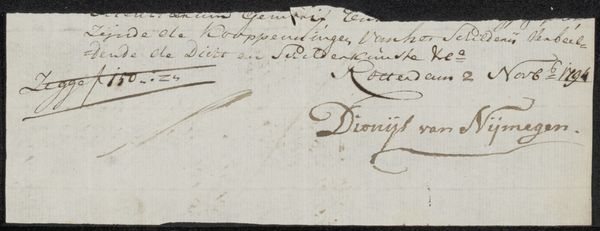 zijnde de Kooppenningen van het Schilderij Verbeel=
dende de Dicht en Schilderkunste &ca
Rotterdam 2 Novb: 1794
Zegge f 150 „:„
Dionijs van Nijmegen.